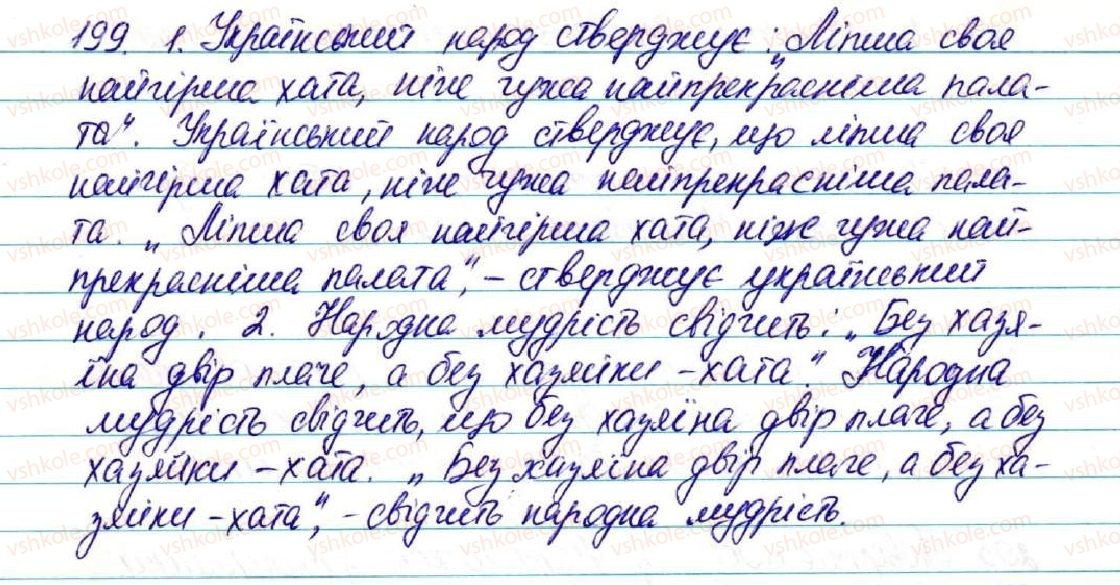 199. 1. Український народ стверджує: „Ліпша своя
найгірша хата, ніже чужа найпрекрасніша пала-
та". Український народ стверджує, що ліпша своя
найгірша хата, ніже чужа найпрекрасніша пала-
та. „Ліпша своя найгірша хата, ніж чужа най-
прекрасніша палата", – стверджує український
народ. 2. Народна мудрість свідчить: „Без хазя-
їна двір плаче, а без хазяйки – хата". Народна
мудрість свідчить, що без хазяїна двір плаче, а без
хазяйки – хата. „Без хазяїна двір плаче, а без ха-
зяйки – хата", – свідчить народна мудрість.